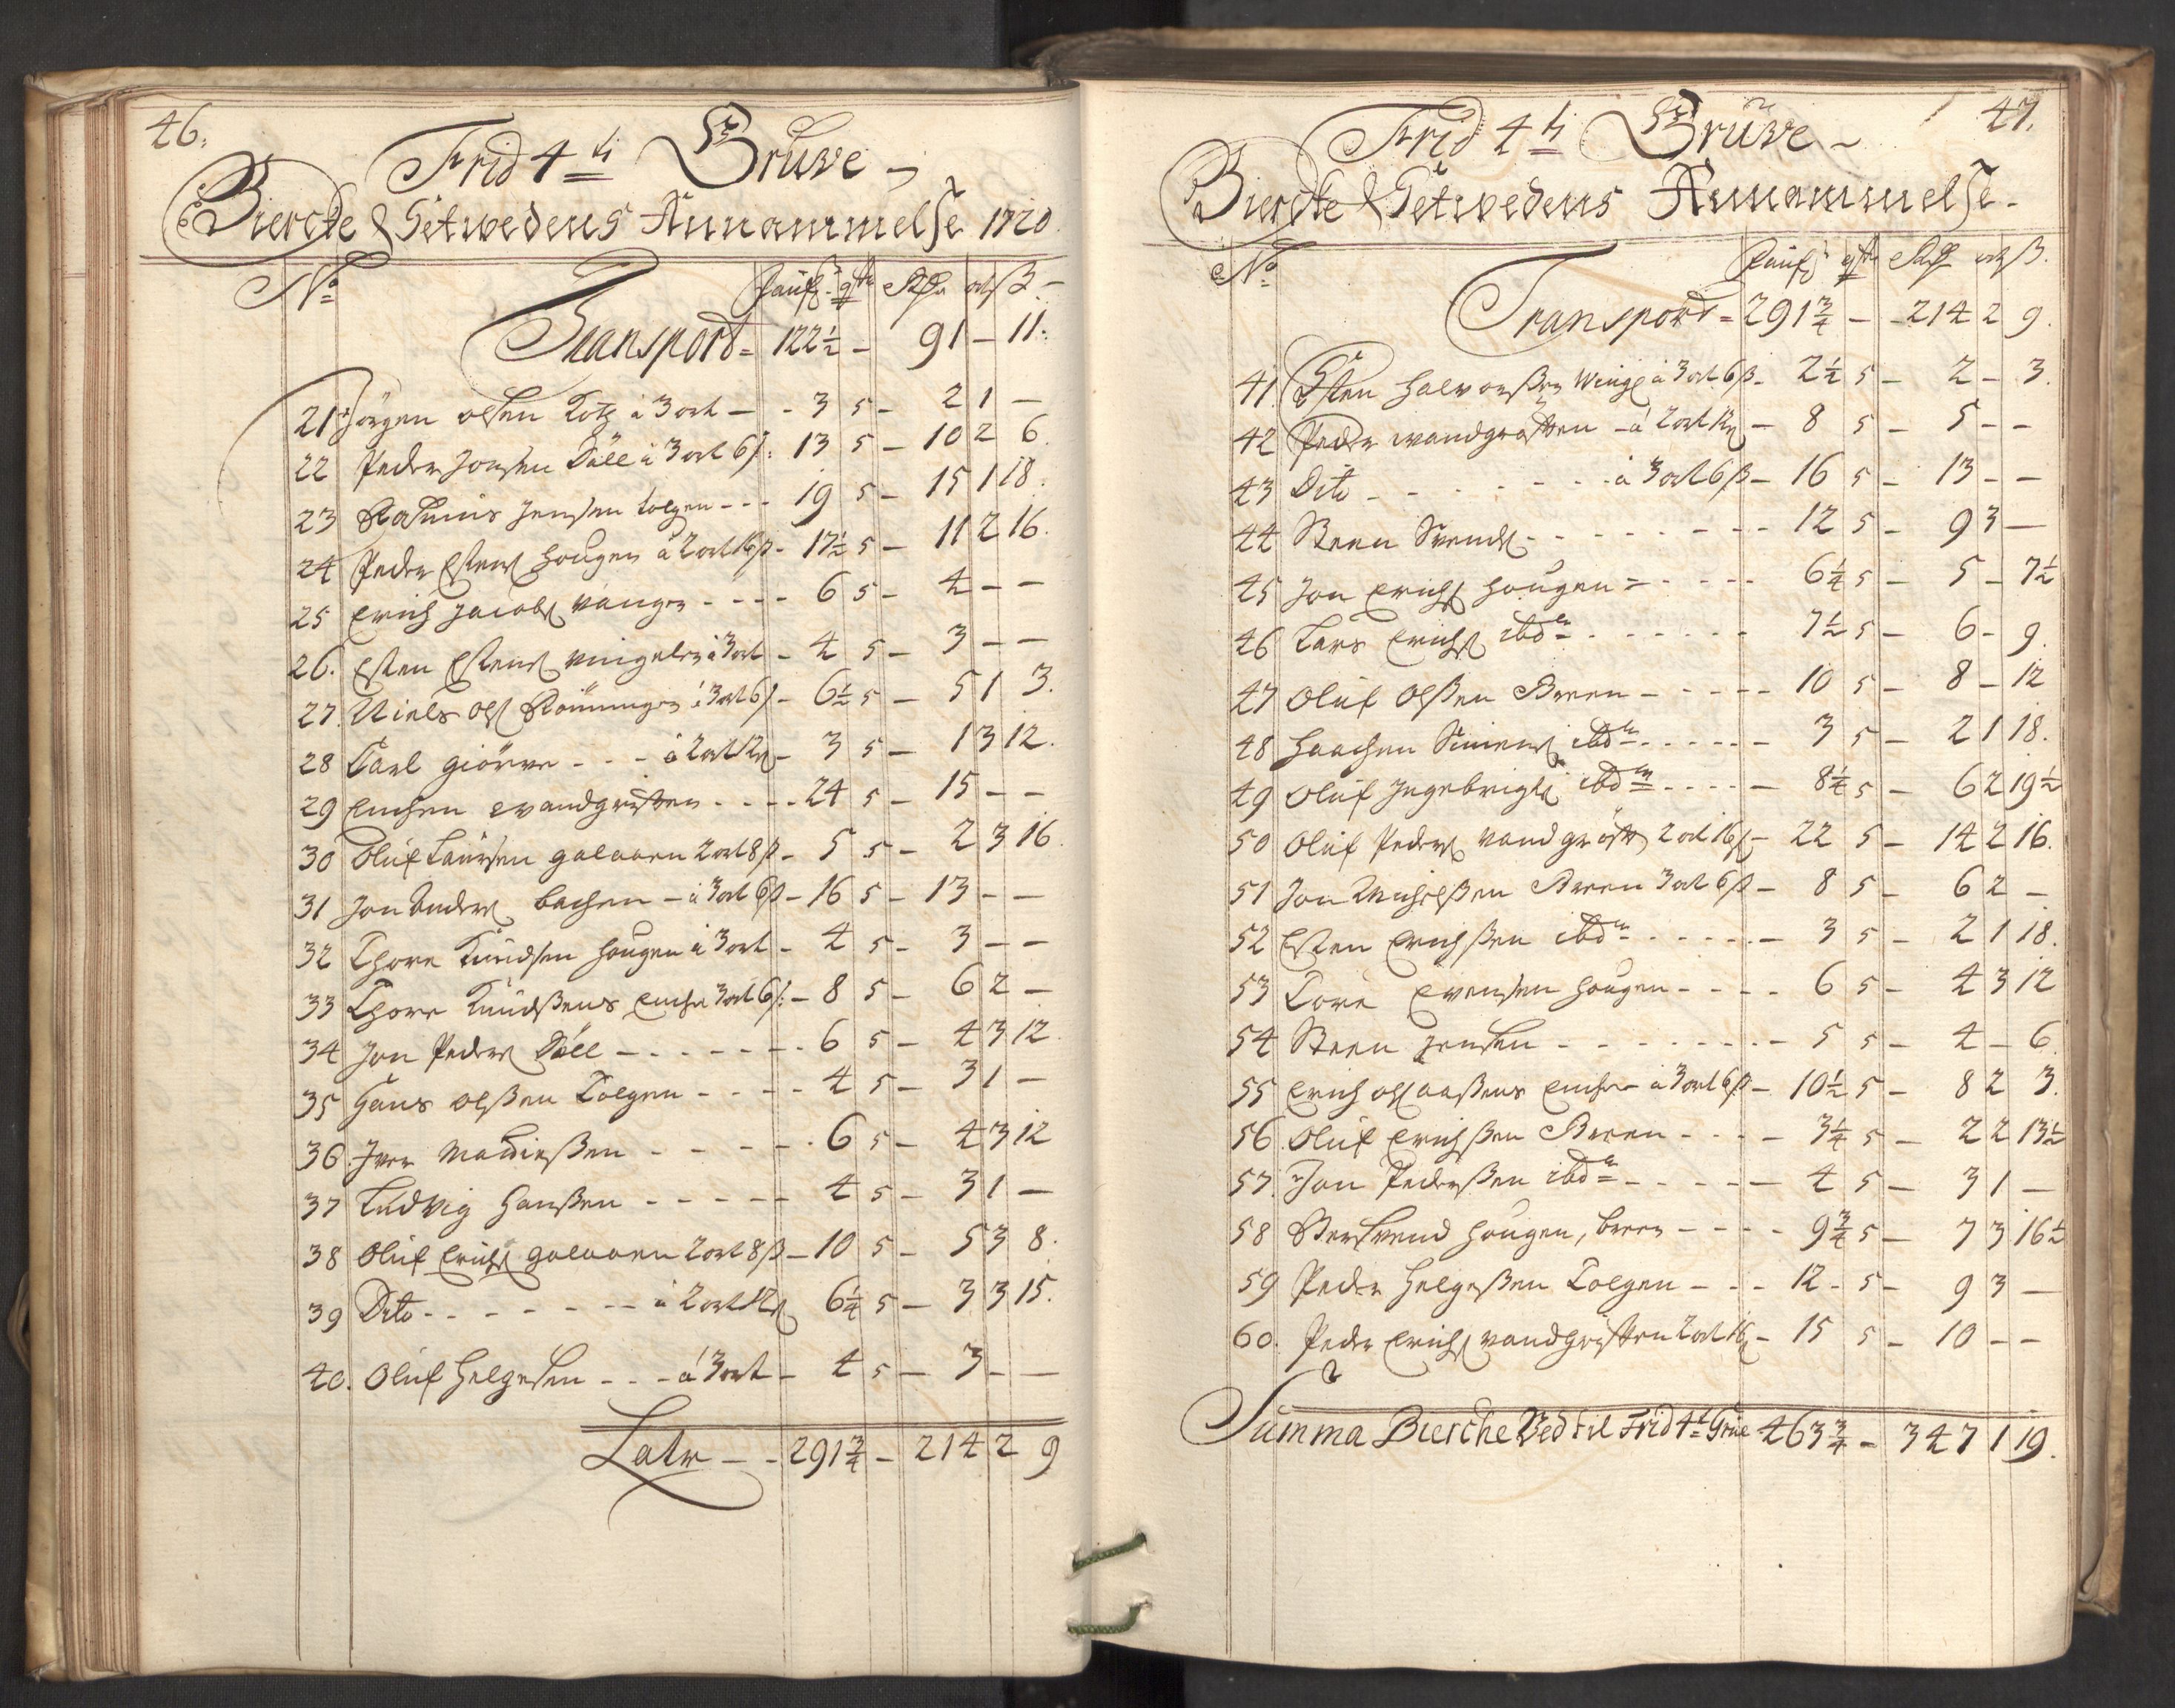 46.
Frid 4ti Gruve
Biercke & Setvedens Annammelse 1720.
No Faufn qtr Rdr ort ß
Transport 122½ - 91 - 11.
21 Jörgen olsen Kotz à 3 ort - 3 5 - 2 1 -
22 Peder Jonsen Döll à 3 ort 6ß: 13 5 - 10 2 6.
23 Rasmus Jensen tolgen - - - 19 5 - 15 1 18.
24 Peder Estens Hougen à 2 ort 16ß - 17½ 5 - 11 2 16.
25 Erich Jacobs vangen - - - - 6 5 - 4 - -
26. Esten Estens vingelen à 3 ort - 4 5 - 3 - -
27. Niels ols Rönningen à 3 ort 6ß - 6½ 5 - 5 1 3.
28 Carl giörre - - - à 2 ort 12ß - 3 5 - 1 3 12.
29 Enchen wandgrøften - - - - 24 5 - 15 - -
30 Oluf Laursen galaaen 2 ort 8ß - 5 5 - 2 3 16
31 Jon Anders bachen - à 3 ort 6ß - 16 5 - 13 - -
32 Thore Knudsen Hougen à 3 ort - 4 5 - 3 - -
33 Thore Knudßens Enche 3 ort 6ß: - 8 5 - 6 2 -
34 Jon Peders Döll - - - - - - - 6 5 - 4 3 12
35 Hans olßen Tolgen - - - - 4 5 - 3 1 -
36. Iver Madsießen - - - - - 6 5 - 4 3 12
37 Ludvig Hanßen - - - - - 4 5 - 3 1 -
38 Oluf Erichs galaaen 2 ort 8ß - 10 5 - 5 3 8.
39 Dito - - - - - - - à 2 ort 12ß 6¼ 5 - 3 3 15.
40. Oluf Helgesen - - - à 3 ort - 4 5 - 3 - -
Latr - - 291¾ - 214 2 9
47.
Frid 4ti Gruve
Biercke & Setvedens Annammelse.
No Faufn qtr Rdr ort ß.
Transport 291¾ - - 214 2 9.
41. Esten Halvorßen Wingl à 3 ort 6ß - 2½ 5 - 2 - 3.
42 Peder wandgrøften - à 2 ort 12ß - 8 5 - 5 - -
43 Dito - - - - - - - à 3 ort 6ß - 16 5 - 13 - -
44 Steen Svends - - - - - - - - 12 5 - 9 3 -
45 Jon Erichs Hougen - - - - - 6¼ 5 - 5 - 7½
46 Lars Erichs ibdm - - - - - - - 7½ 5 - 6 - 9.
47 Oluf Olßen Breen - - - - - 10 5 - 8 - 12
48 Haachen Simens ibdm - - - - - - 3 5 - 2 1 18.
49 Oluf Ingebrigts ibdm - - - - - 8¼ 5 - 6 2 19½
50 Oluf Peders vandgrøft 2 ort 16ß - 22 5 - 14 2 16.
51 Jon Michelßen Breen 3 ort 6ß - 8 5 - 6 2 -
52 Esten Erichßen ibdm - - - - - - 3 5 - 2 1 18.
53 Tore Evensen Hougen - - - - 6 5 - 4 3 12
54 Steen Jensen - - - - - - - - 5 5 - 4 - 6
55 Erich olsaaßens Enche - à 3 ort 6ß - 10½ 5 - 8 2 3.
56. Oluf Erichßen Breen - - - - 3¼ 5 - 2 2 13½
57. Jon Pederßen ibdm - - - - - - 4 5 - 3 1 -
58 Hougen, breen - - - - 9¾ 5 - 7 3 16½
59 Peder Helgeßen Tolgen - - - 12 - 5 - 9 3 -
60. Peder Erichs vandgrøften 2 ort 16ß - 15 5 - 10 - -
Summa Bierche Ved til Frid 4ti Grue 463¾ - 347 1 19.